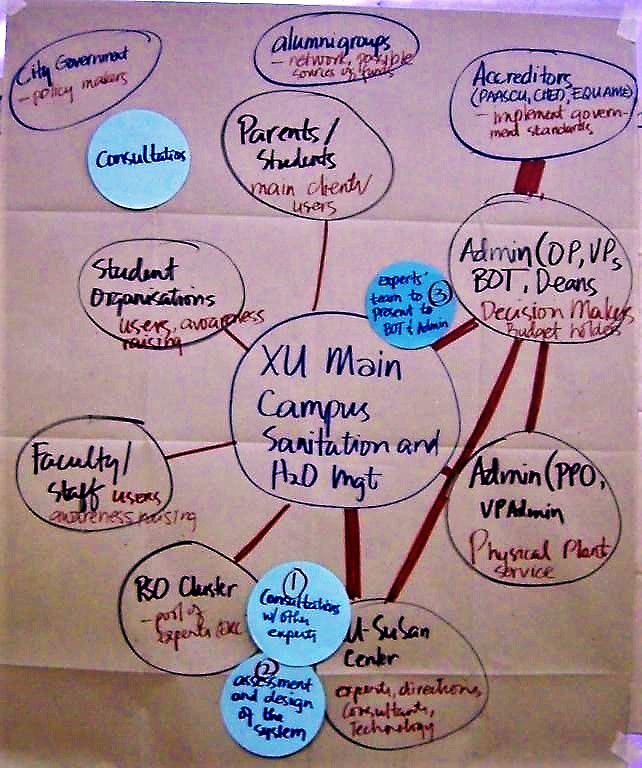 City Government
- policy makers
alumni groups
- network, possible
sources of funds
Accreditors
(PAASCU, CHED, EQUAME)
- implement govern-
ment standards
Consultation
Parents/
Students
main clients/
users
Student
Organisations
users, awareness
raising
experts'
team to ③
present to
BOT & Admin
Admin (OP, VPs
BOT, Deans
Decision Makers
Budget holders
XU Main
Campus
Sanitation and
H2O Mgt
Faculty/
Staff users
awareness raising
Admin (PPO,
VPAdmin
Physical Plant
service
RSO Cluster
- pool of
experts
①
Consultations
w/ other
experts
②
assessment
and design
of the
system
U-SuSan
Center
experts, directions,
Consultants,
Technology